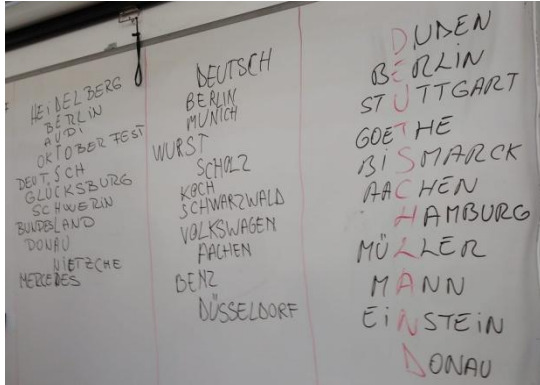 HEIDELBERG
BERLIN
AUDI
OKTOBERFEST
DEUTSCH
GLÜCKSBURG
SCHWERIN
BUNDESLAND
DONAU
NIETZCHE
MERCEDES
DEUTSCH
BERLIN
MUNICH
WURST
SCHOLZ
KOCH
SCHWARZWALD
VOLKSWAGEN
AACHEN
BENZ
DÜSSELDORF
DUDEN
BERLIN
STUTTGART
GOETHE
BISMARCK
AACHEN
HAMBURG
MÜLLER
MANN
EINSTEIN
DONAU